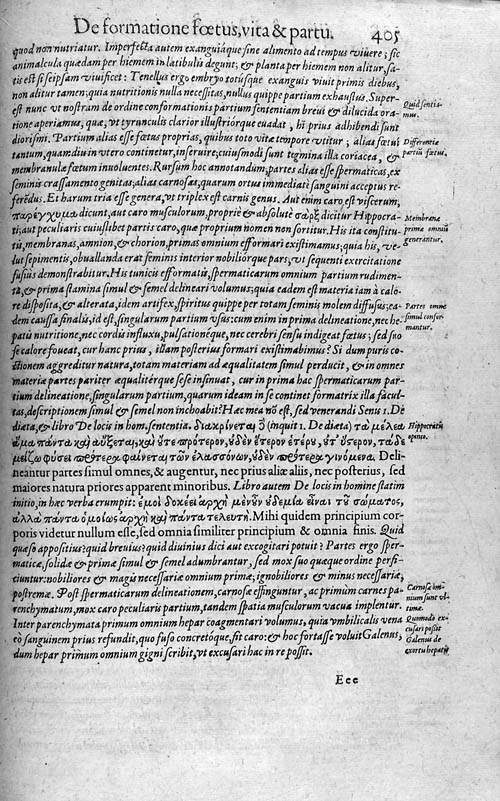 De formatione fœtus, vita & partu. 405
quod non nutriatur. Imperfecta autem exanguiáque sine alimento ad tempus viuere; sic
animalcula quædam per hiemem in latibulis degunt; & planta per hiemem non alitur, sa-
tis est si seipsam viuificet: Tenellus ergo embryo totúsque exanguis viuit primis diebus,
non alitur tamen; quia nutritionis nulla necessitas, nullus quippe partium exhaustus. Super-
est nunc vt nostram de ordine conformationis partium sententiam breui & dilucida ora-
Quid sentia-
mus.
tione aperiamus, quæ, vt tyrunculis clarior illustriórque euadat, hi priùs adhibendi sunt
diorismi. Partium alias esse fœtus proprias, quibus toto vitæ tempore vtitur; alias fœtui
Differentiæ
partiū fœtus.
tantum, quamdiu in vtero continetur, inseruire; cuiusmodi sunt tegmina illa coriacea, &
membranulæ fœtum inuoluentes. Rursùm hoc annotandum, partes alias esse spermaticas, ex
seminis crassamento genitas; alias carnosas, quarum ortus immediatè sanguini acceptus re-
ferēdus. Et harum tria esse genera, vt triplex est carnis genus. Aut enim caro est viscerum,
παρέγχυμα dicunt, aut caro musculorum, propriè & absolutè σαρξ dicitur Hippocra-
Membranæ
primæ omniū
generantur.
ti; aut peculiaris cuiuslibet partis caro, quæ proprium nomen non sortitur. His ita constitu-
tis, membranas, amnion, & chorion, primas omnium efformari existimamus; quia his, ve-
lut sepimentis, obuallanda erat feminis interior nobiliórque pars; vt sequenti exercitatione
fusiùs demonstrabitur. His tunicis efformatis, spermaticarum omnium partium rudimen-
ta, & prima stamina simul & semel delineari volumus; quia eadem est materia iam à calo-
re disposita, & alterata, idem artifex, spiritus quippe per totam seminis molem diffusus; ea-
Partes omnes
simul confor-
mantur.
dem caussa finalis, id est, singularum partium vsus: cum enim in prima delineatione, nec he-
patis nutritione, nec cordis influxu, pulsationéque, nec cerebri sensu indigeat fœtus; sed suo
se calore foueat, cur hanc priùs, illam posteriùs formari existimabimus? Si dum puris co-
ctionem aggreditur natura, totam materiam ad æqualitatem simul perducit, & in omnes
materiæ partes pariter æqualitérque sese insinuat, cur in prima hac spermaticarum par-
tium delineatione, singularum partium, quarum ideam in se continet formatrix illa facul-
tas, descriptionem simul & semel non inchoabit? Hæc mea nō est, sed venerandi Senis 1. De
diæta, & libro De locis in hom. sententia. διακρίνεται δὲ (inquit 1. De diæta) τὰ μέλεα
Hippocratis
opinio.
ἅμα πάντα καὶ αὔξεται, καὶ οὔτε πρότερον, οὐδὲν ἕτερον ἑτέρου, οὔθ' ὕστερον, τὰ δὲ
μείζω φύσει πρότερα φαίνεται τῶν ἐλασσόνων, οὐδὲν πρότερα γινόμενα. Deli-
neantur partes simul omnes, & augentur, nec prius aliæ aliis, nec posterius, sed
maiores natura priores apparent minoribus. Libro autem De locis in homine statim
initio, in hæc verba erumpit: ἐμοὶ δοκέει ἀρχὴ μὲν οὖν οὐδεμία εἶναι τοῦ σώματος,
ἀλλὰ πάντα ὁμοίως ἀρχὴ καὶ πάντα τελευτή. Mihi quidem principium cor-
poris videtur nullum esse, sed omnia similiter principium & omnia finis. Quid
quæso appositius? quid breuius? quid diuinius dici aut excogitari potuit? Partes ergo sper-
maticæ, solidæ & primæ simul & semel adumbrantur, sed mox suo quæque ordine perfi-
ciuntur: nobiliores & magis necessariæ omnium primæ, ignobiliores & minus necessariæ,
postremæ. Post spermaticarum delineationem, carnosæ effinguntur, ac primùm carnes pa-
Carnosæ om-
nium sunt vl-
timæ.
renchymatum, mox caro peculiaris partium, tandem spatia musculorum vacua implentur.
Inter parenchymata primum omnium hepar coagmentari volumus, quia vmbilicalis vena
Quomodo ex-
cusari possit
Galenus de
exortu hepatis
eò sanguinem prius refundit, quo fuso concretóque, fit caro: & hoc fortasse voluit Galenus,
dum hepar primùm omnium gigni scribit, vt excusari hac in re possit.
Eee